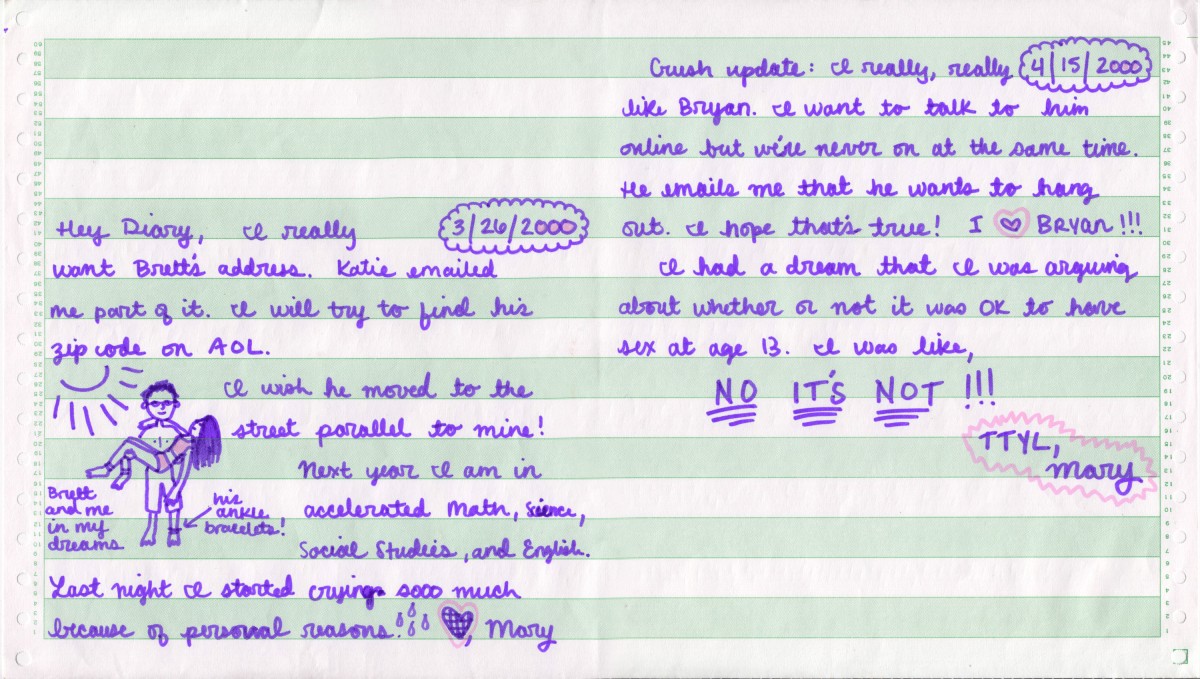 Hey Diary, I really
3/26/2000
want Brett's address. Katie emailed
me part of it. I will try to find his
zip code on AOL.
I wish he moved to the
street parallel to mine!
Next year I am in
accelerated Math, Science,
Social Studies, and English.
Brett
and me
in my
dreams
his
ankle
bracelets!
Last night I started crying sooo much
because of personal reasons.
, Mary
Crush update: I really, really
4/15/2000
like Bryan. I want to talk to him
online but we're never on at the same time.
He emails me that he wants to hang
out. I hope that's true! I ♡ BRYAN!!!
I had a dream that I was arguing
about whether or not it was OK to have
sex at age 13. I was like,
NO IT'S NOT!!!
TTYL,
Mary